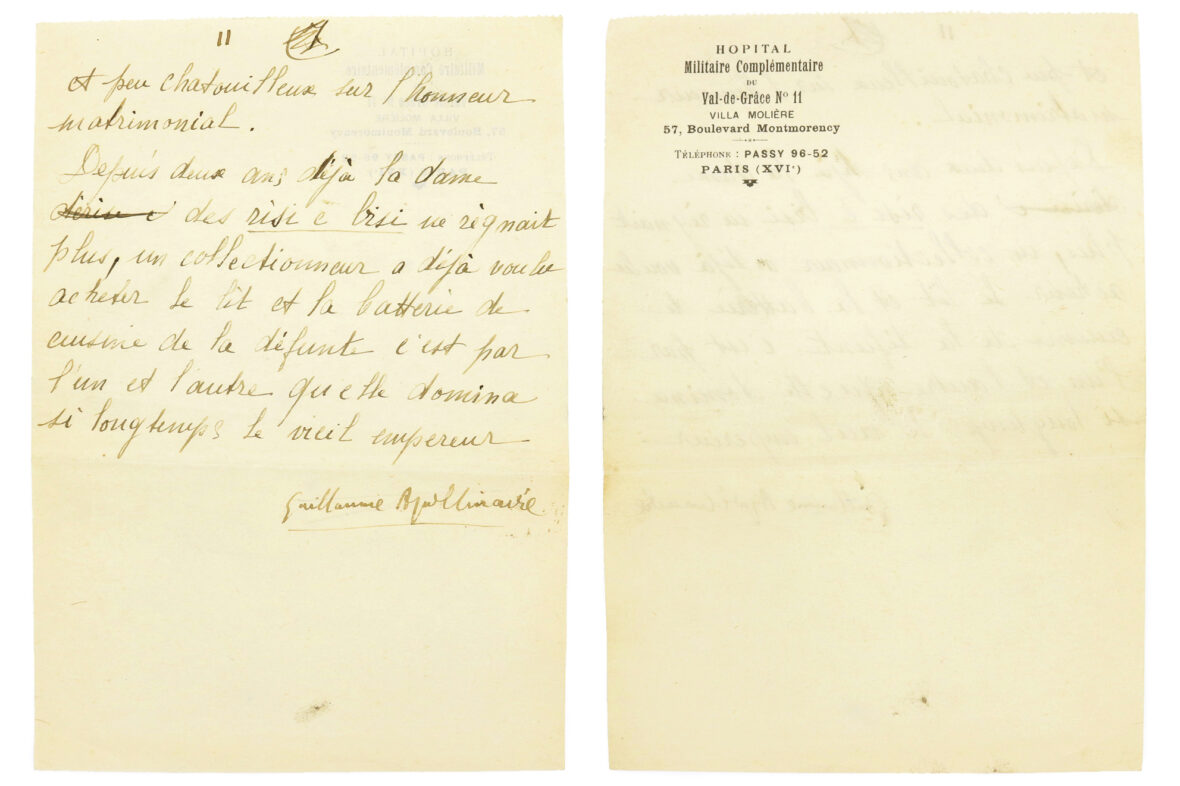 11
et peu chatouilleux sur l'honneur
matrimonial.
Depuis deux ans déjà la dame
des risi e bisi ne règnait
plus, un collectionneur a déjà voulu
acheter le lit et la batterie de
cuisine de la défunte c'est par
l'un et l'autre qu elle domina
si longtemps le vieil empereur
Guillaume Apollinaire
HOPITAL
Militaire Complémentaire
DU
Val-de-Grâce No 11
VILLA MOLIÈRE
57, Boulevard Montmorency
TÉLÉPHONE : PASSY 96-52
PARIS (XVIe)